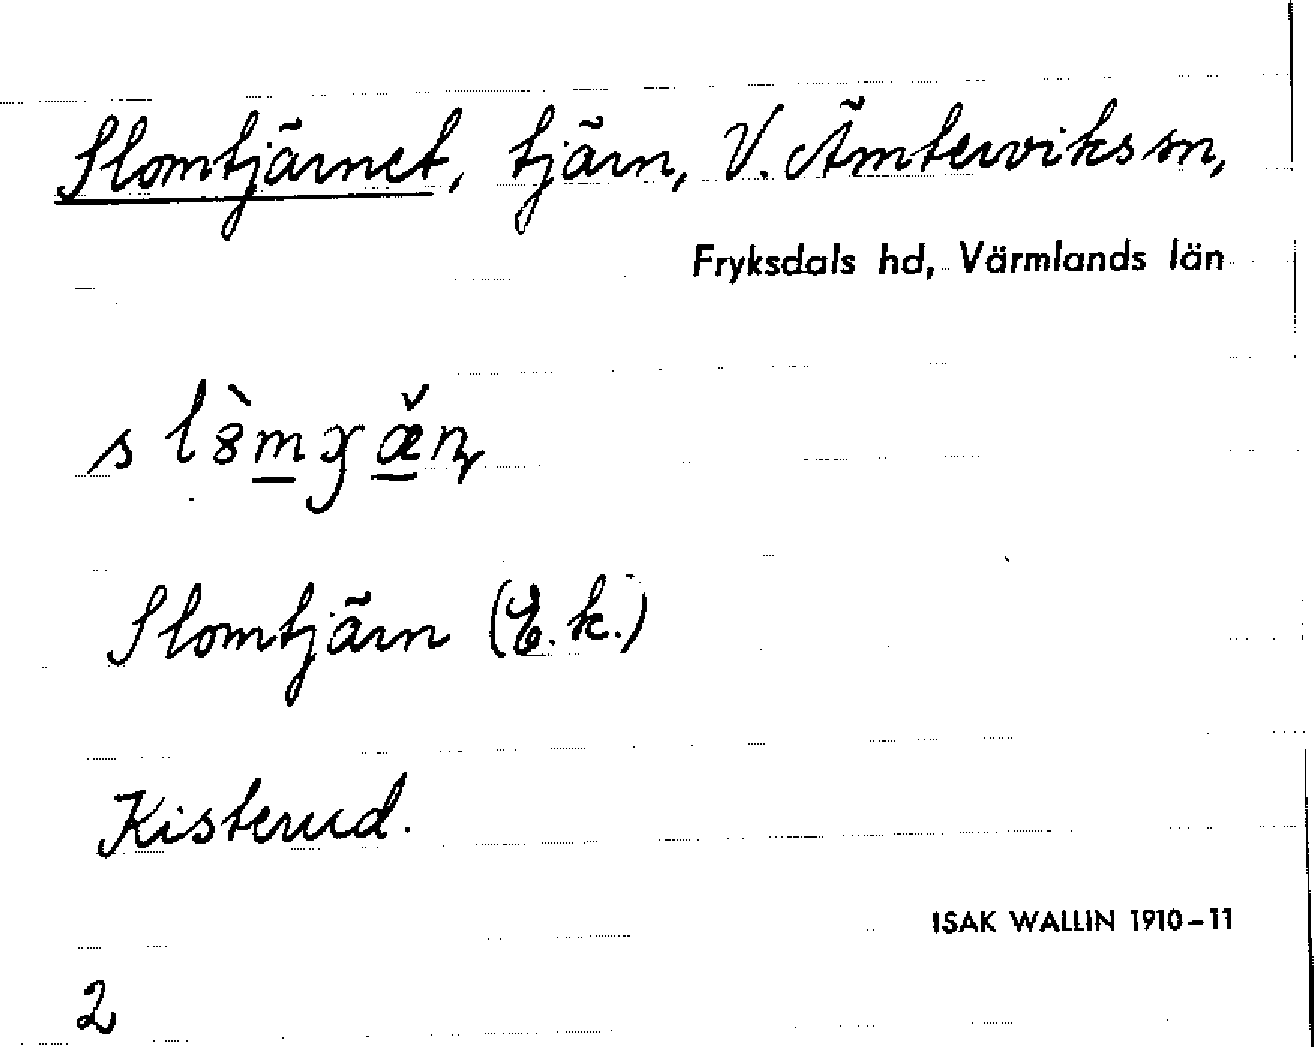 Slomtjärnet, tjärn, V. Ämterviks sn,
Fryksdals hd, Värmlands län
Slomtjärn (E.k.)
Kisterud.
ISAK WALLIN 1910–11
2